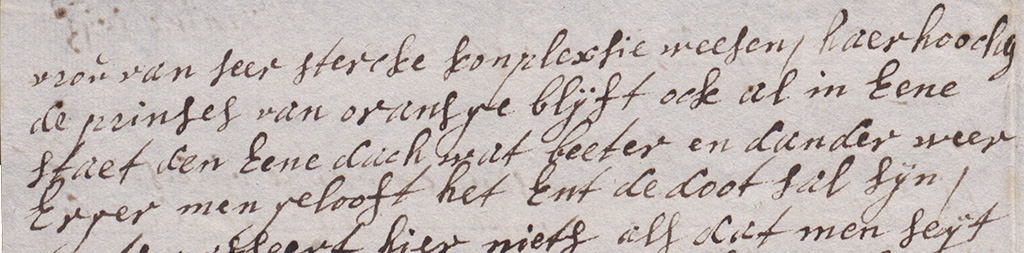 vrou van seer stercke konplexsie weesen, haer hoochg
de prinses van oransye blyft ock al in Eene
staet den Eene dach wat beeter en dander weer
Erger men gelooft het Ent de doot sal syn,
hier niets als dat men seyt